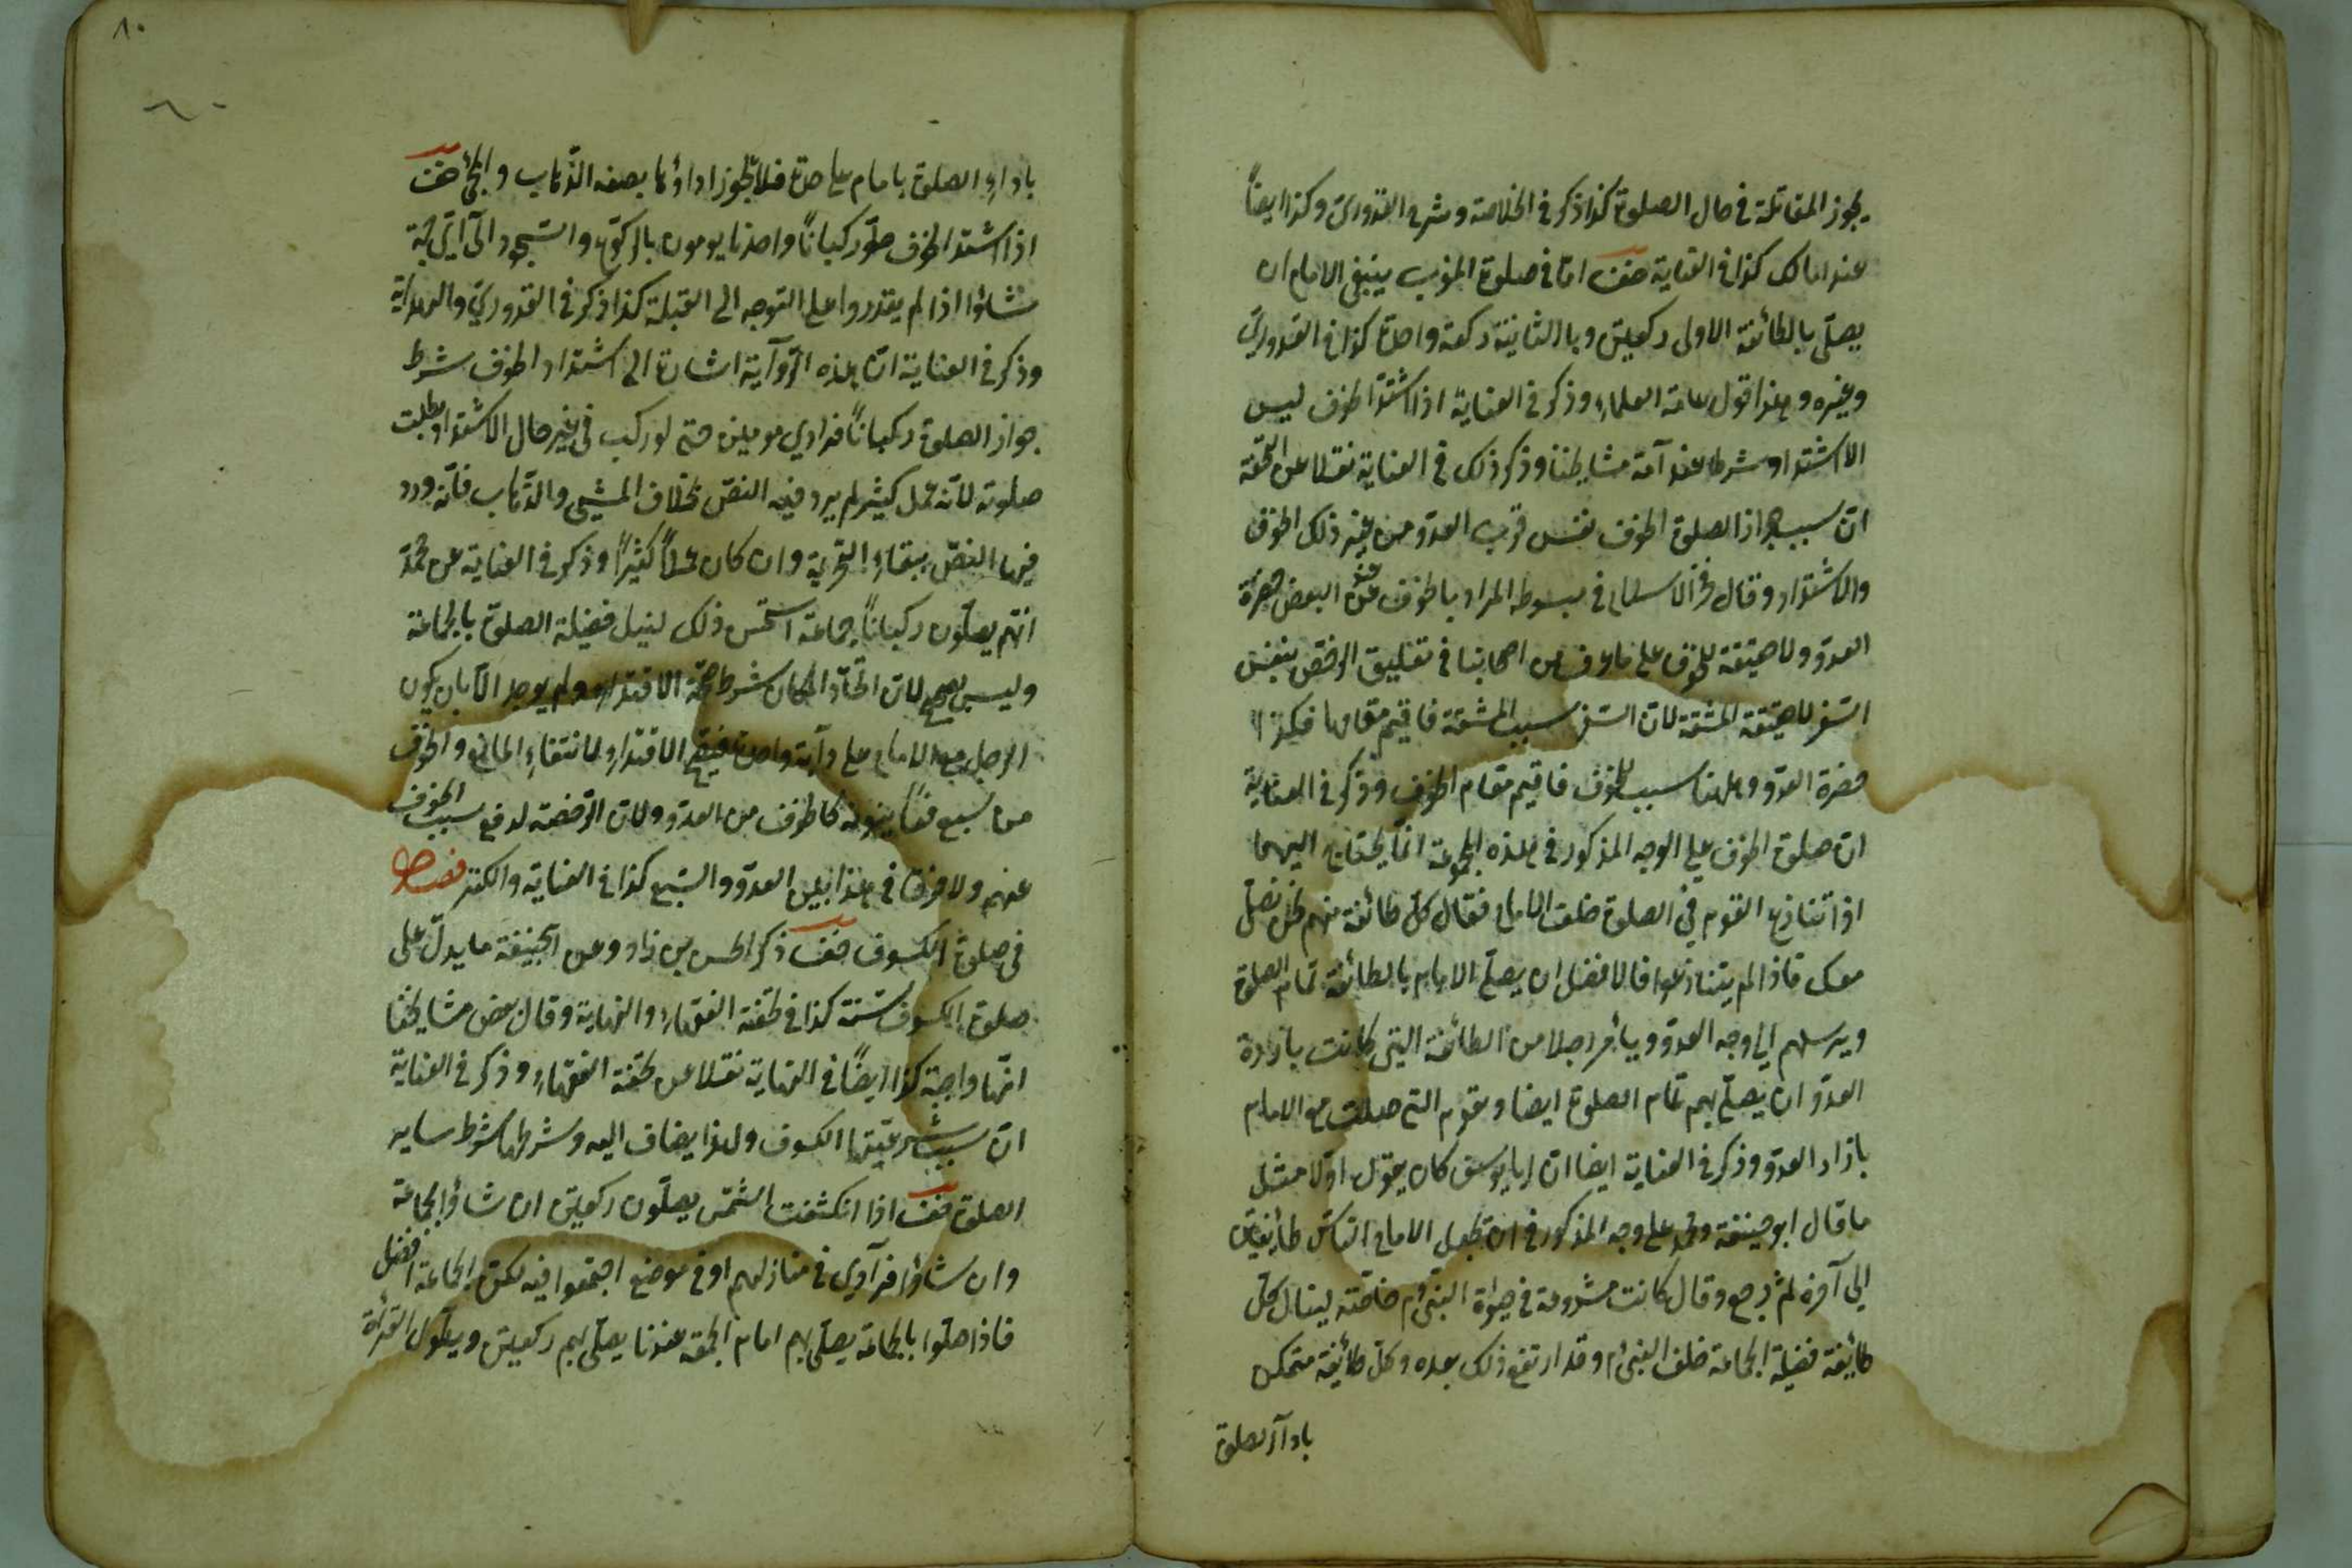 يجوز المقاتلة في حال الصلوة كذا ذكر في الخلاصة وشرح القدوري وكذا ايضاً
عند مالك كذا في العناية صنف اما في صلوة المغرب ينبغي الامام ان
يصلّي بالطائفة الاولى ركعتين وبالثانية ركعة واحدة كذا في القدوري
وغيره وهذا قول عامة العلماء وذكر في العناية اذا اشتد الخوف ليس
الاشتداد شرط عند آمة مشايخنا وذكر ذلك في العناية نقلا عن التحفة
انّ سبب جواز الصلوة الخوف نفس قرب العدو من غير ذلك الخوف
والاشتداد وقال فخر الاسلام في مبسوطه المراد بالخوف عند البعض حضرة
العدوّ ولا حقيقة للخوف على ما عرف من اصحابنا في تعليق الرخص بنفس
السّفر لا حقيقة المشقّة لانّ السّفر سبب المشقة فاقيم مقامها فكذا
حضرة العدوّ وههنا سبب للخوف فاقيم مقام الخوف وذكر في العناية
ان صلوة الخوف على الوجه المذكور في هذه انّما يحتاج اليهما
اذا تنازع القوم في الصلوة خلف الامام فقال كلّ طائفة منهم نحن نصلّي
معك فاذا لم يتنازعوا فالافضل ان يصلّي الامام بالطائفة تمام الصلوة
ويرسلهم الى وجه العدوّ ويأمر رجلا من الطائفة التي كانت بازاء
العدوّ ان يصلّي بهم تمام الصلوة ايضا وتقوم التي صلت مع الامام
بازاء العدوّ وذكر في العناية ايضا انّ ابا يوسف كان يقول اوّلا مثل
ما قال ابو حنيفة ومحمد على وجه المذكور في ان يجعل الامام النّاس طائفتين
الى آخره ثم رجع وقال كانت مشروعة في حيوة النبيّ م خاصّة لينال كلّ
طائفة فضيلة الجماعة خلف النبيّ م وقد ارتفع ذلك بعده وكلّ طائفة متمكن
بادآء الصلوة
باداء الصلوة بامام على حدة فلا يجوز اداؤها بصفة الذّهاب والمجئ صنف
اذا اشتد الخوف صلّوا ركباناً وحدانا يومون بالركوع والسّجود الى ايّ جهة
شاؤا اذا لم يقدروا على التوجه الى القبلة كذا ذكر في القدوري والهداية
وذكر في العناية انّ هذه الرّوآية اشارة الى اشتداد الخوف شرط
جواز الصلوة ركباناً فرادي مومين حتى لو ركب في غير حال الاشتداد بطلت
صلوته لانّه عمل كثير لم يرد فيه النصّ بخلاف المشي والذّهاب فانّه ورد
فيها النصّ ببقاء التحريمة وان كان عملاً كثيراً وذكر في العناية عن محمّد
انّهم يصلّون ركباناً بجماعة استحسن ذلك لنيل فضيلة الصلوة بالجماعة
وليس بصحيح لانّ اتحاد المكان شرط صحّة الاقتداء ولم يوجد الّا بان يكون
الرجل مع الامام على دآبة واحدة فيصح الاقتداء لانتفاء المانع والخوف
من سبع كالخوف من العدوّ ولانّ الرّخصة لدفع سبب الخوف
عنهم ولا فرق في هذا بين العدوّ والسّبع كذا في العناية والكنز فصل
في صلوة الكسوف صنف ذكر الحسن بن زاد وعن ابحنيفة ما يدلّ على
صلوة الكسوف سنّة كذا في تحفة الفقهاء والنهاية وقال بعض مشايخنا
انّها واجبة كذا ايضاً في النهاية نقلا عن تحفة الفقهاء وذكر في العناية
انّ سبب شرعيّتها الكسوف ولهذا يضاف اليه وشرطها شرط ساير
الصلوة صنف اذا انكسفت الشّمس يصلّون ركعتين ان شاؤا بجماعة
وان شاؤا فرآدي في منازلهم او في موضع اجتمعوا فيه لكن الجماعة افضل
فاذا صلّوا بالجماعة يصلّي بهم امام الجمعة عندنا يصلّي بهم ركعتين ويطول القرائة